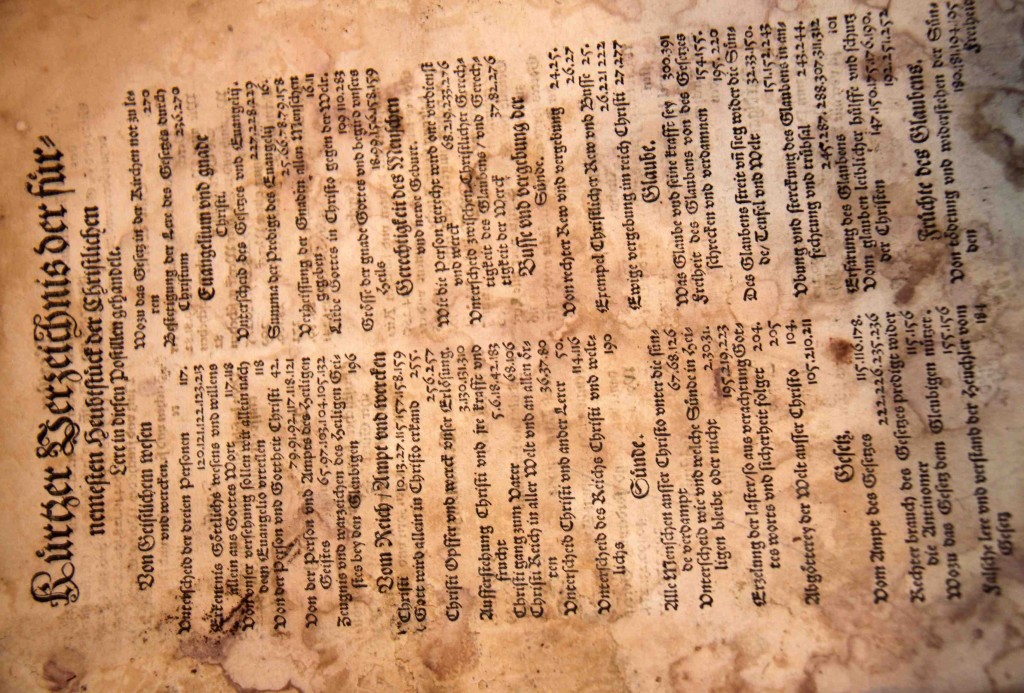 Kurtzer Verzeichnis der für-
nemesten Heubtstück der Christlichen
Lere in diesen Postillen gehandelt.
Von Göttlichem wesen
und wercken.
Vnterscheid der dreien Personen 117.
120.121.122.123.213
Erkentnis Göttlichs wesens und willens
allein aus Gottes Wort 117.118
Von vnser versehung sollen wir allein nach
dem Euangelio vrteilen 118
Von der Person und Gottheit Christi 42.
79.91.92.117.118.121
Von der Person und Ampt des Heiligen
Geistes 65.97.103.104.105.132
Zeugnis und warzeichen des Heiligen Gei-
stes bey den Gleubigen 196
Vom Reich / Ampt und wercken
Christi 10.13.27.115.157.158.159
Gott wird allein in Christo erkand 255.
256.257
Christi Opffer und werck vnser Erlösung.
3.130.131.310
Aufferstehung Christi und jre krafft und
frucht 5.6.18.42.183
Christi gang zum Vater 68.106
Christi Reich in aller Welt und an allen ör-
ten 36.37.80
Vnterscheid Christi und ander Lerer 50.
114.116
Vnterscheid des Reichs Christi und welt-
lichs 190
Sünde.
Alle Menschen ausser Christo vnter die sün-
de verdampt 67.68.126
Vnterscheid wie und welche Sünde in Hei-
ligen bleibt oder nicht 2.30.31.
195.219.223
Erzelung der laster / so aus verachtung Got-
tes worts und sicherheit folget 204.
205
Abgötterey der Welt ausser Christo 104.
105.210.211
Gesetz.
Vom Ampt des Gesetzes 115.116.178.
222.226.235.236
Rechter brauch des Gesetzes predigt wider
die Antinomer 115.156
Wozu das Gesetz dem Gleubigen nütze.
155.156
Falsche lere und verstand der Heuchler vom
Gesetz 184
Wozu das Gesetz in der Kirchen not zu le-
ren 270
Bestetigung der Lere des Gesetzes durch
Christum 236.270
Euangelium und gnade
Christi.
Vnterscheid des Gesetzes und Euangelij.
227.228.229
Summa der Predigt des Euangelij 16.
25.66.78.79.158
Verheissung der Gnaden allen Menschen
gegeben 16.11
Liebe Gottes in Christo gegen der Welt.
109.110.283
Grösse der gnade Gottes und begird vnsers
Heils 18.99.156.158.159
Gerechtigkeit des Menschen
und newe Geburt.
Wie die Person gerecht wird one verdienst
und werck 68.219.233.276
Vnterscheid zwisschen Christlicher Gerech-
tigkeit des Glaubens / und Gerech-
tigkeit der Werck 37.82.276
Busse und vergebung der
Sünde.
Von rechter Rew und vergebung 24.25.
26.27
Exempel Christlicher Rew und Busse 25.
26.221.222
Ewige vergebung im reich Christi 27.277
Glaube.
Was Glaube und seine krafft sey 300.391
Freiheit des Glaubens von des Gesetzes
schrecken und verdamnen 154.155.
195.220
Des Glaubens streit uñ sieg wider die Sün-
de / Teufel und Welt 32.33.150.
151.152.243
Vbung und sterckung des Glaubens in an-
fechtung und trübsal 243.244.
245.287.288.307.311.312
Erfarung des Glaubens 101
Vom glauben leiblicher hülffe und schutz
der Christen 147.150.175.176.190.
192.251.252
Früchte des Glaubens.
Von tödtung und widerstehen der Sün-
den 180.181.194.195
Freiheit